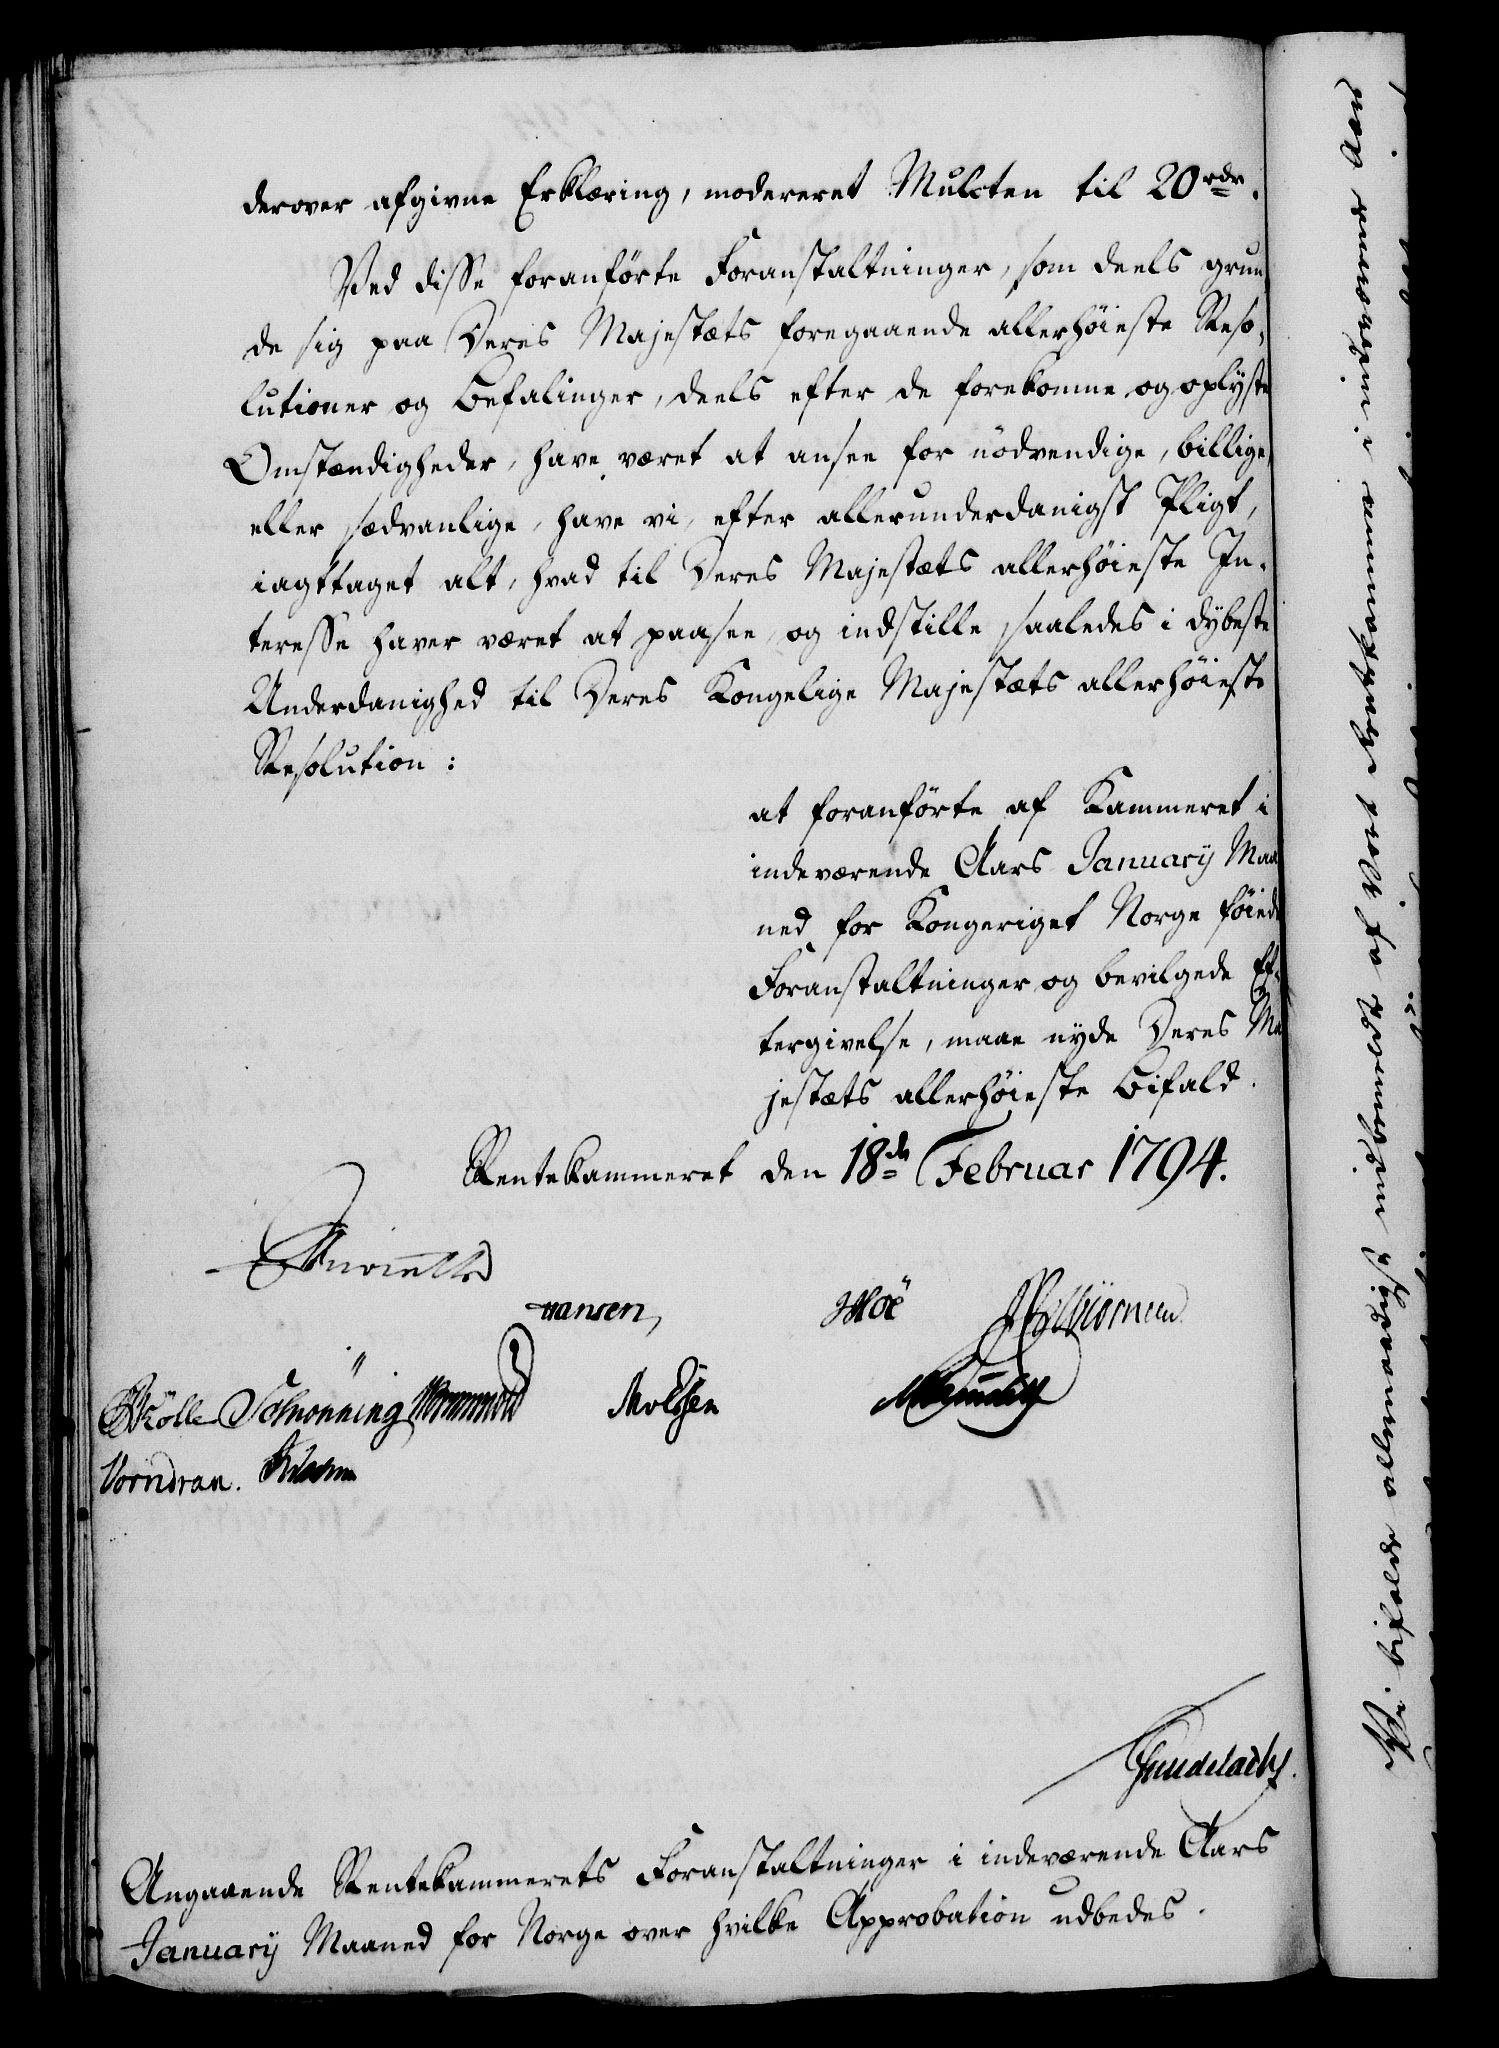 derover afgivne Erklæring, modereret Mulcten til 20 rdr.
Ved disse foranförte Foranstaltninger, som deels grun
de sig paa Deres Majestæts foregaaende allerhöieste Reso-
lutioner og Befalinger, deels efter de forekomne og oplyste
Omstændigheder, have været at ansee for nödvendige, billige,
eller sædvanlige, have vi, efter allerunderdanigst Pligt,
iagttaget alt, hvad til Deres Majestæts allerhöieste In-
teresse haver været at paasee, og indstille saaledes i dÿbeste
Underdanighed til Deres Kongelige Majestæts allerhöieste
Resolution:
at foranförte af Kammeret i
indeværende Aars Januarÿ Maa
ned for Kongeriget Norge föiede
Foranstaltninger og bevilgede Ef-
tergivelse, maae nyde Deres Ma
jestæts allerhöieste Bifald.
Rentekammeret den 18de Februar 1794.
Hansen, Möe
Schönning
Vorndran.
Gundelach.
Angaaende Rentekammerets Foranstaltninger i indeværende Aars
Januarÿ Maaned for Norge over hvilke Approbation udbedes.
Vi bifalde allernaadigst indbemeldte af Vort Rentekammer i indeværende Aars